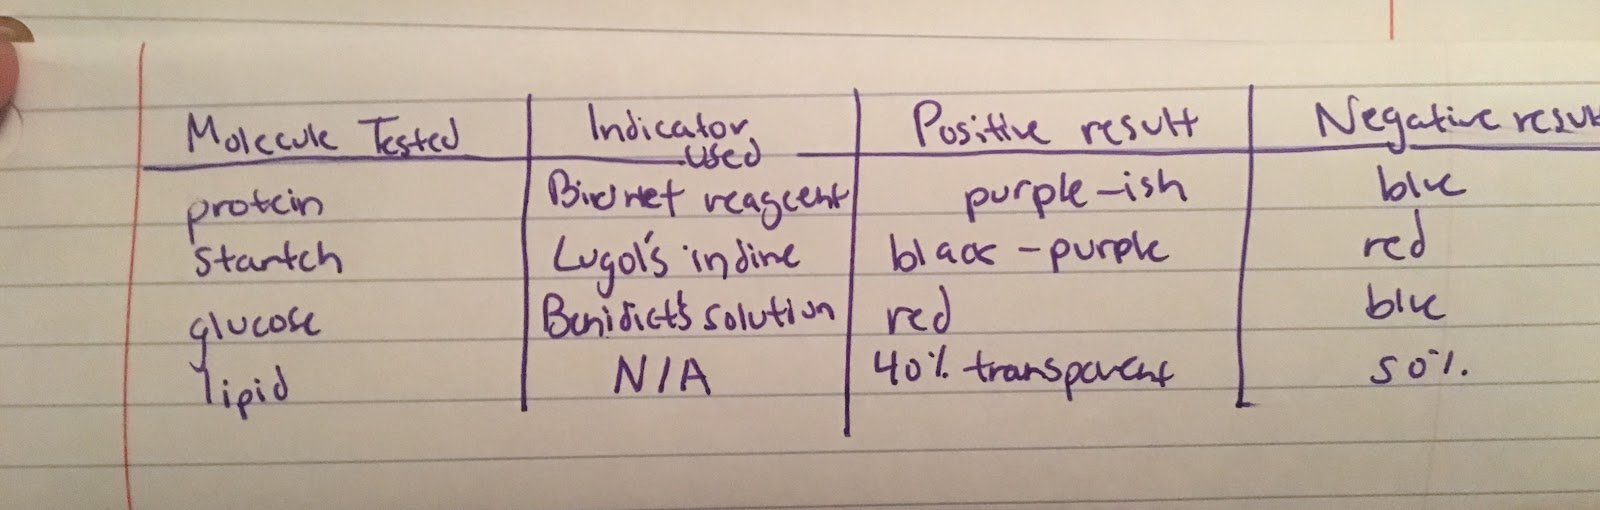 Molecule Tested Indicator used Positive result Negative resul
protein Biurnet reageent purple-ish blue
startch Lugol's indine black-purple red
glucose Benidict's solution red blue
lipid N/A 40% transparent 50%